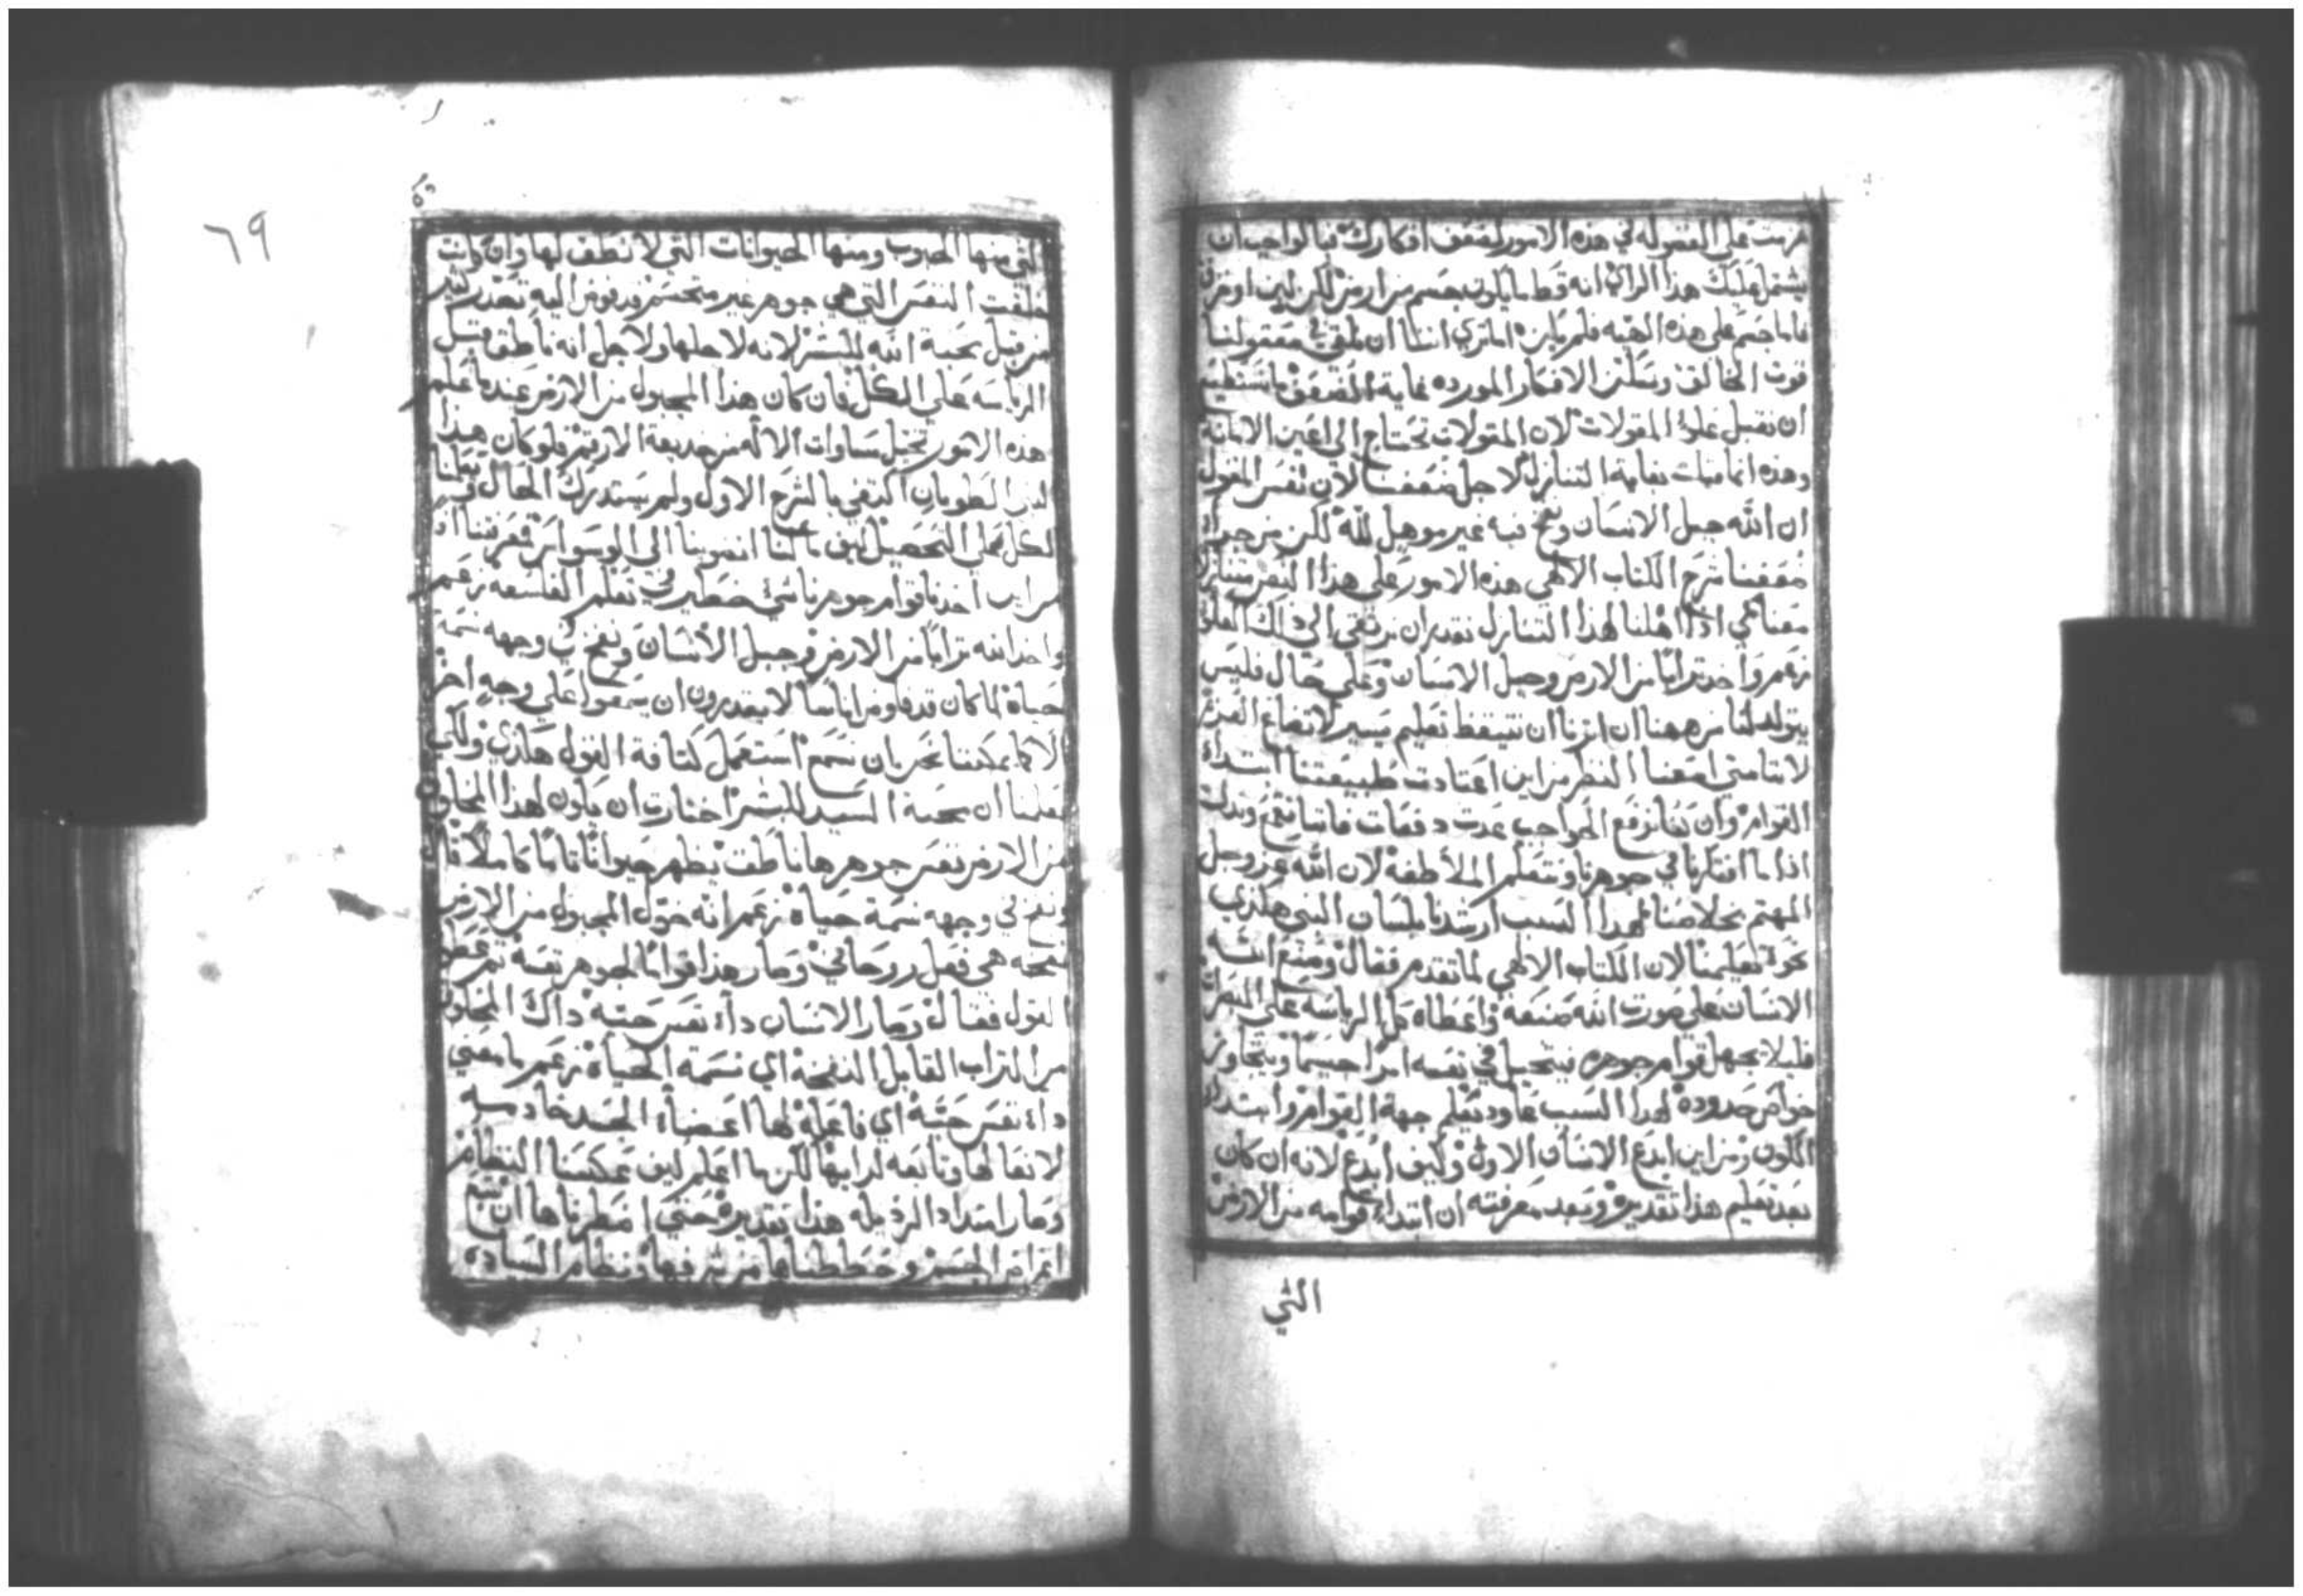 عزمت على القوله في هذه الامور لضعف افكارك فبالواجب ان
يشتمل عليك هذا الراي انه قط ما يكون جسم من ارض لكن لبن او خزف
فاما جسم على هذه الهيه فلم يكن اما تري اننا ان نلقي في معقولنا
قوت الخالق ونسكن الافكار المورده غاية الضعف ما نستطيع
ان نقبل علو المقولات لان المقولات تحتاج الي اعين الامانة
وهذه انما قيلت بغاية التنازل لاجل ضعفنا لان نفس القول
ان الله جبل الانسان ونفخ فيه غير موهل لله لكن من جراة
ضعفنا شرح الكتاب الالهي هذه الامور على هذا النص متنازلا
معنا لكي اذا اهلنا لهذا التنازل نقدر ان نرتقي الى ذاك العلو
زعم واخذ ترابا من الارض وجبل الانسان وعلى حال فليس
يتولد لنا من ههنا ان اثرنا ان نتيقظ تعليم يسير لاتضاع العزم
لاننا متي امعنا النظر من اين اعتادت طبيعتنا ابتداء
القوام وان كنا نرفع الحواجب عدت دفعات فاننا نقمع ونذلل
اذا ما افتكرنا في جوهرنا ونتعلم الملاطفة لان الله عز وجل
المهتم بخلاصنا لهذا السبب ارشدنا بلسان النبي هكذي
نحو تعليمنا لان الكتاب الالهي لما تقدم فقال وصنع الله
الانسان على صورت الله صنعه واعطاه كل الرياسة على المبصرات
فليلا يجهل قوام جوهره فيتخيل في نفسه امرا جسيما ويتجاوز
خواص حدوده لهذا السبب عاود تعلم جهة القوام وابتداء
الكون ومن اين ابدع الانسان الاول وكيف ابدع لانه ان كان
بعد تعليم هذا تقديره وبعد معرفته ان ابتداء قوامه من الارض
الثي
٦٩
التي منها الحبوب ومنها الحيوانات التي لا نطق لها وان كانت
خلقت النفس التي هي جوهر غير متجسم قد فوض اليه تقدم كثير
من قبل محبة الله للبشر لانه لاجلها ولاجل انه ناطق قبل
الرياسه على الكل فان كان هذا المجبول من الارض عند ما علم
هذه الامور تخيل مساوات الاله من خديعة الارقم فلو كان هذا
النبي الطوبان اكتفي بالشرح الاول ولم يستدرك الحال فيعلمنا
الكل على التحصيل كيف ما كنا انغوينا الى الوسواس فعرفنا اذ
من اين اخذنا قوام جوهرنا شي خطير في تعلم الفلسفه زعم
واخذ الله ترابا من الارض وجبل الانسان ونفخ في وجهه نسمة
حياة لما كان قد فاوض اناسا لا يقدرون ان يسمعوا على وجه اخر
الا كما يمكننا نحن ان نسمع استعمل كثافة القول هكذي ولكي
يعلمنا ان محبة السيد للبشر اختارت ان يكون لهذا المخلوق
من الارض نفس جوهرها ناطق يظهر حيوانا تاما كاملا قال
ونفخ في وجهه نسمة حياة زعم انه خول المجبول من الارض
نفخه هي فعل روحاني وصار هذا قواما لجوهر نفسه ثم عطف
القول فقال وصار الانسان داء نفس حيه ذاك المخلوق
من التراب القابل النفخه اي نسمة الحياة زعم ما معني
داء نفس حيه اي فاعله لها اعضاء الجسد خادمه
لافعالها وتابعه لرايها لكن ما اعلم كيف عكسنا النظام
وصار امتداد الرذيله هذا تقديره حتي اضطرناها ان تتبع
اغراض الجسد وحططناها من شرفها ونظام السياده